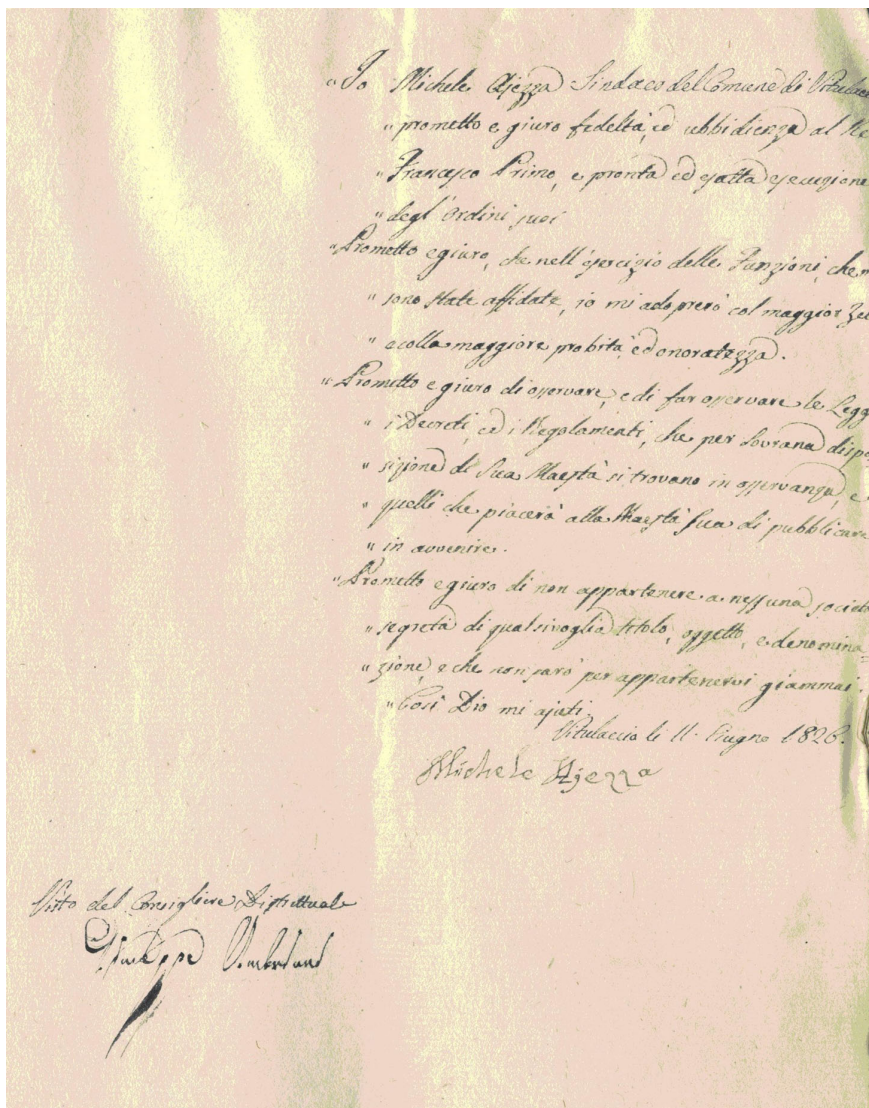 "Io Michele Ajezza Sindaco del Comune di Vitulacc
" prometto e giuro fedeltà, ed ubbidienza al Re
" Francesco Primo, e pronta ed esatta esecuzione
" degl'Ordini suoi
"Prometto e giuro, che nell'esercizio delle Funzioni, che m
" sono state affidate, io mi adoprerò col maggior Zel
" e colla maggiore probità, ed onoratezza.
"Prometto e giuro di osservare, e di far osservare le Legg
" i Decreti, ed i Regolamenti, che per Sovrana dispo
" sizione di Sua Maestà si trovano in osservanza, e
" quelli che piacerà alla Maestà Sua di pubblicare
" in avvenire.
"Prometto e giuro di non appartenere a nessuna società
" segreta di qualsivoglia titolo, oggetto, e denomina=
" zione, e che non sarò per appartenervi giammai.
" Così Dio mi ajuti.
Vitulaccio li 11 Giugno 1826.
Michele Ajezza
Visto del Consigliere Distrettuale
Giuseppe